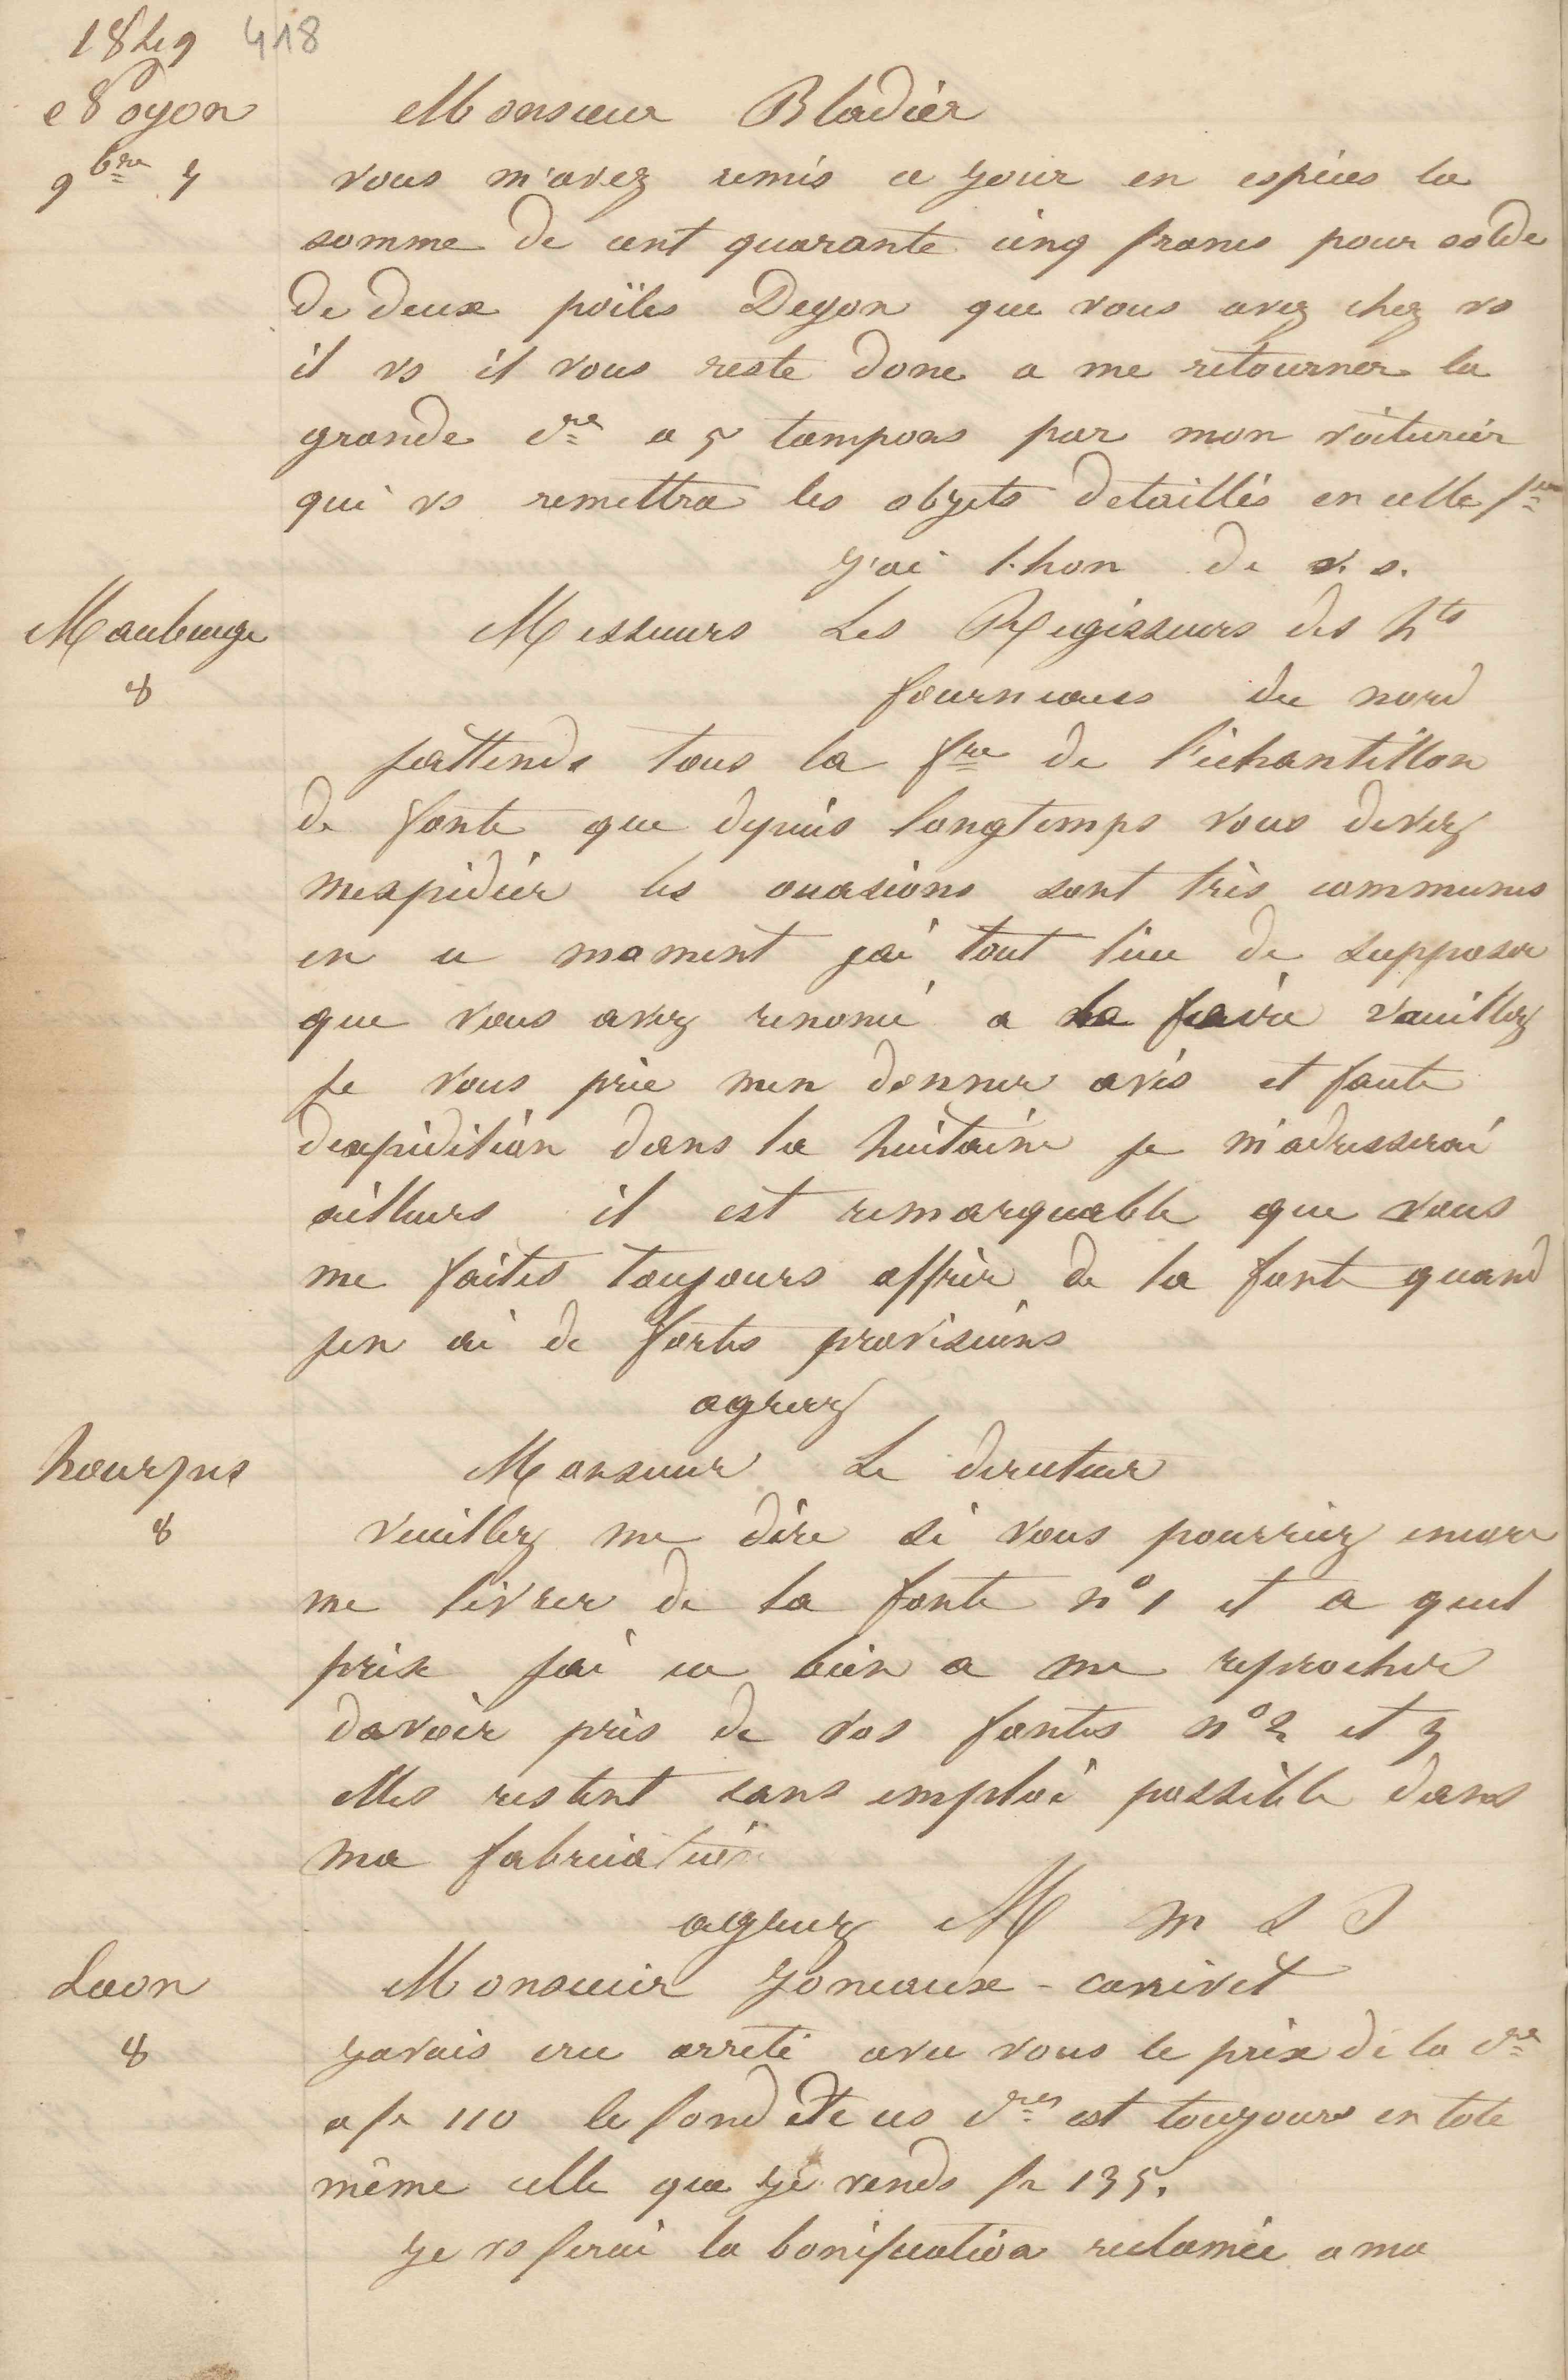 1849 418
Noyon
9bre 7
Monsieur Bladier
vous m'avez remis ce jour en espèces la
somme de cent quarante cinq francs pour solde
de deux poïles Deyon que vous avez chez vs
il vs il vous reste donc a me retourner la
grande cre a 5 tampons par mon voiturier
qui vs remettra les objets detaillés en cette fre
j'ai l'hon de v. s.
Maubeuge
8
Messieurs Les Regisseurs des hts
fourneaux du nord
jattends tous la fre de l'échantillon
de fonte que depuis longtemps vous devez
mexpédier les occasions sont très communes
en ce moment jai tout lieu de supposer
que vous avez renoncé a la faire veuillez
je vous prie men donner avis et faute
dexpédition dans la huitaine je m'adresserai
ailleurs il est remarquable que vous
me faites toujours offrir de la fonte quand
jen ai de fortes provisions
agreez
hourpes
8
Monsieur Le directeur
veuillez me dire si vous pourriez encore
me livrer de la fonte n° 1 et a quel
prix jai eu bien a me reprocher
davoir pris de vos fontes n° 2 et 3
elles restent sans emploi possible dans
ma fabrication
agreez M m S S
Laon
8
Monsieur Joneaux - canivet
javais cru arrete avec vous le prix de la cre
a fr 110 le fond de ces cres est toujours en tole
même celle que je vends fr 135.
je vs ferai la bonification reclamée a ma